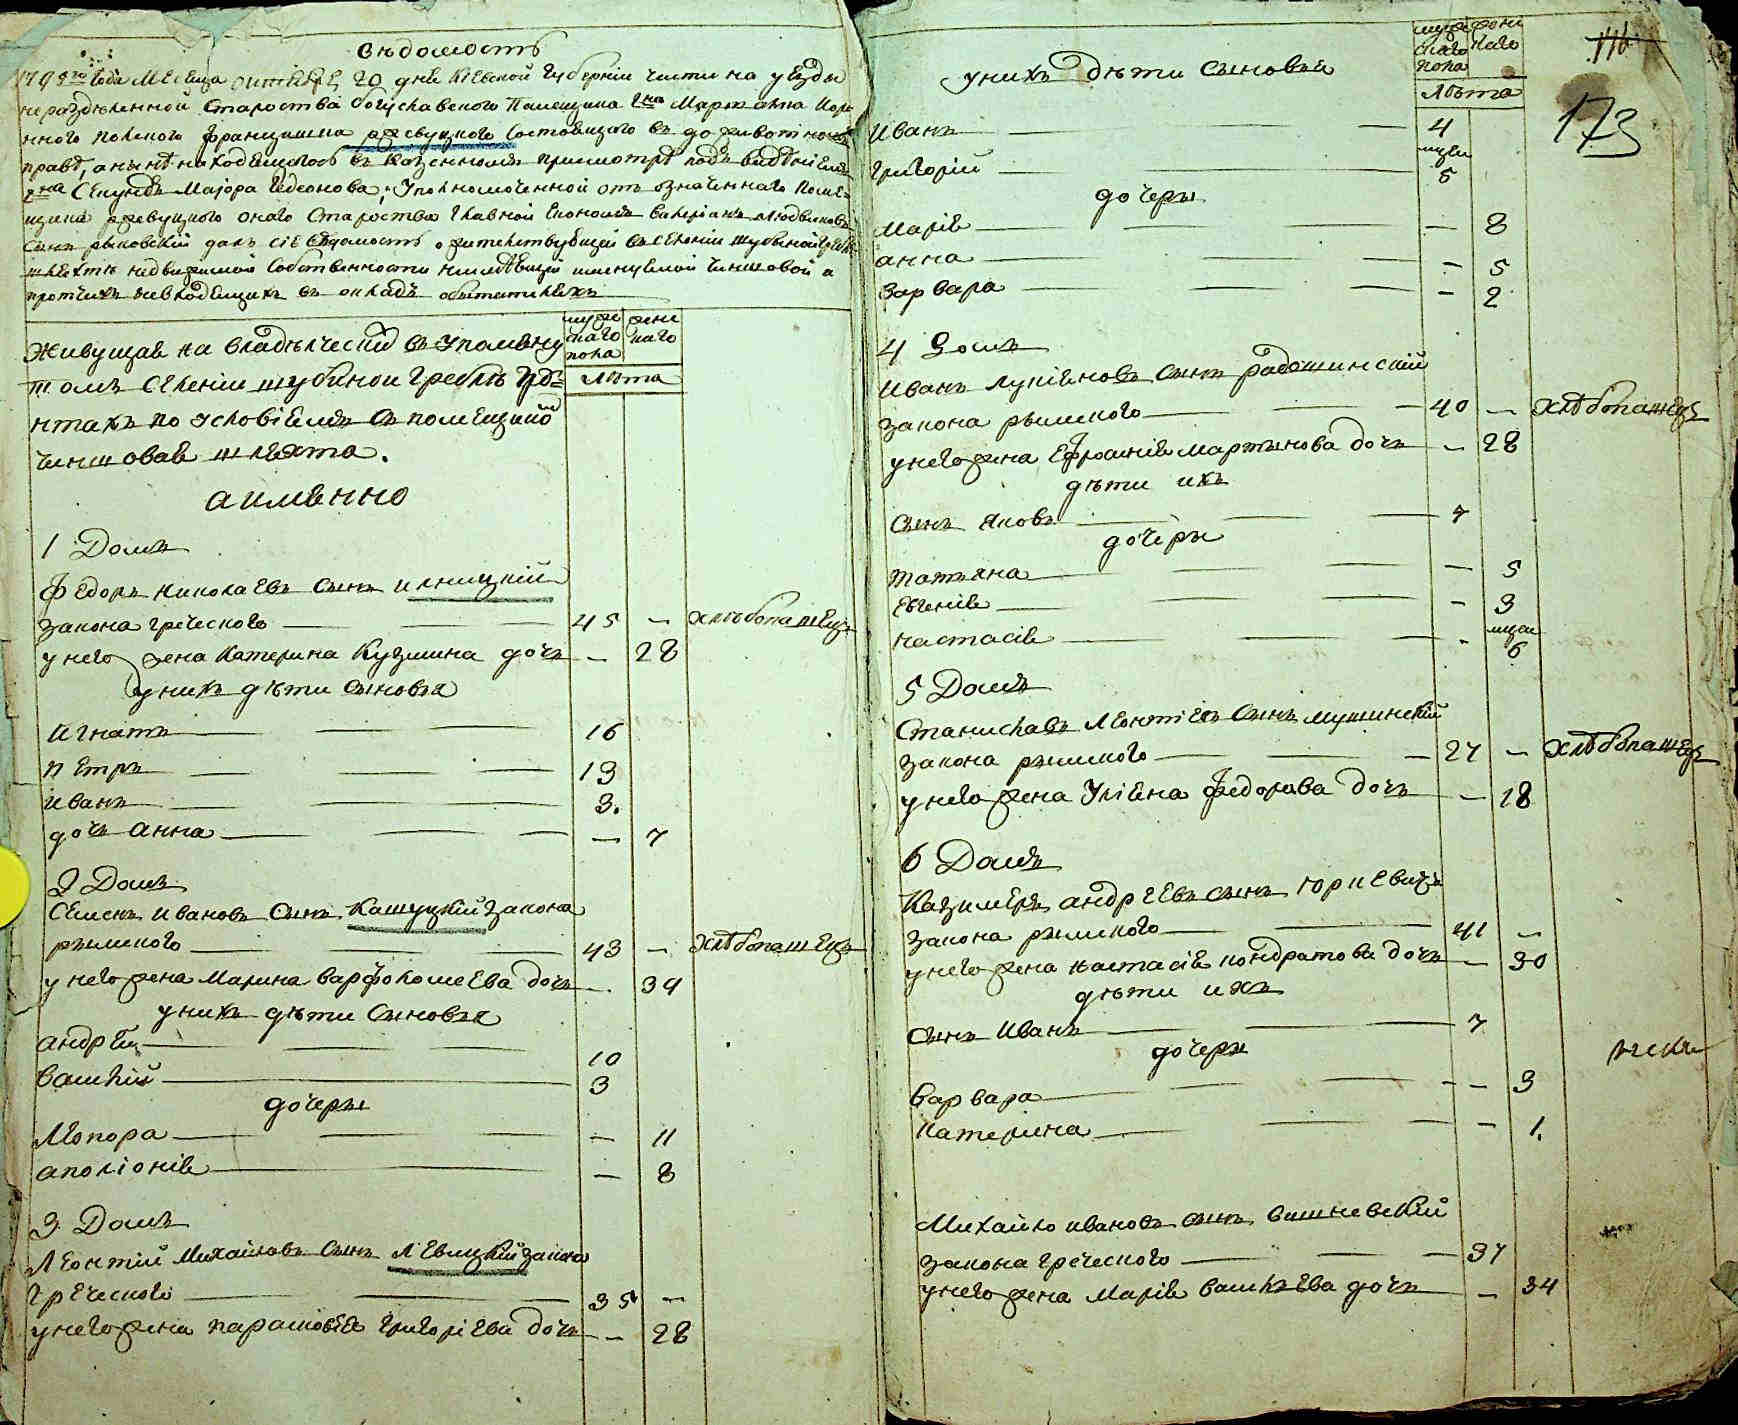 Вѣдомость
1795го года месеца октебрѣ 20 дне киевской губерніи части на уезды
нераздѣленной староства богуславского помещика гна Маршалка кол
нного полского францишка ржевуцкого состоещого въ доживотномъ
правѣ, а нынѣ находещогось въ казенномъ присмотрѣ подъ видѣніемъ
гна Секундъ Маіора Гедеонова, Уполномоченной отъ означенного поме-
щика ржевуцкого оного староства главной економъ валеріанъ людвиковъ
сынъ рыковскій далъ сіе ведомость о жителствующей въ селеніи шубиной греблѣ
шлехтѣ недвижимой собственности неимѣющей именуемой чиншовой и
протчихъ невходещихъ въ окладъ обытателехъ
Живущае на владѣлческой въ упомяну
томъ селеніи шубиной греблѣ Гру-
нтахъ по условіемъ съ помещикой
чиншовае шлехта.
а имѣнно
муже
скаго
пола
жен
скаго
лѣта
1 Домъ
Федоръ николаевъ сынъ илницкій
закона греческого 45 — хлѣбопашецъ
у него жена Катерина Кузмина дочъ — 28
у нихъ дѣти сыновья
Игнатъ 16
Петръ 13
Иванъ 3.
дочъ анна — 7
2 Домъ
Семенъ Ивановъ сынъ Кашуцкій закона
рымского 43 — хлѣбопашецъ
у него жена Марина варфоломеева дочъ — 34
у нихъ дѣти сыновья
андрей 10
василій 3
дочеры
Меланора — 11
аполіоніе — 8
3 Домъ
Леонтій Михайловъ сынъ Левицкій закона
греческого 35 —
у него жена парасковіе григоріева дочъ — 28
173
муже
скаго
пола
жен
скаго
лѣта
у нихъ дѣти сыновья
Иванъ 4
мцы
Григорій 5
дочеры
Маріе — 8
анна — 5
Варвара — 2
4 Домъ
Иванъ лукіеновъ сынъ радошинскій
закона рымского 40 — хлѣбопашецъ
у него жена Ефросиніе мартынова дочъ — 28
дѣти ихъ
сынъ яковъ 7
дочеры
татьяна — 5
евгеніе — 3
мцы
настасіе — 6
5 Домъ
Станиславъ леонтіевъ сынъ мушинскій
закона рымского 27 — хлѣбопашецъ
у него жена Уліена федорова дочъ — 18
6 Домъ
Казимеръ андреевъ сынъ юриевичъ
закона рымского 41 —
у него жена настасіе кондратова дочъ — 30
дѣти ихъ
сынъ Иванъ 7
дочеры
варвара — 3
катерина — 1.
Михайло ивановъ сынъ вишневскій
закона греческого 37
у него жена Маріе василъева дочъ — 34